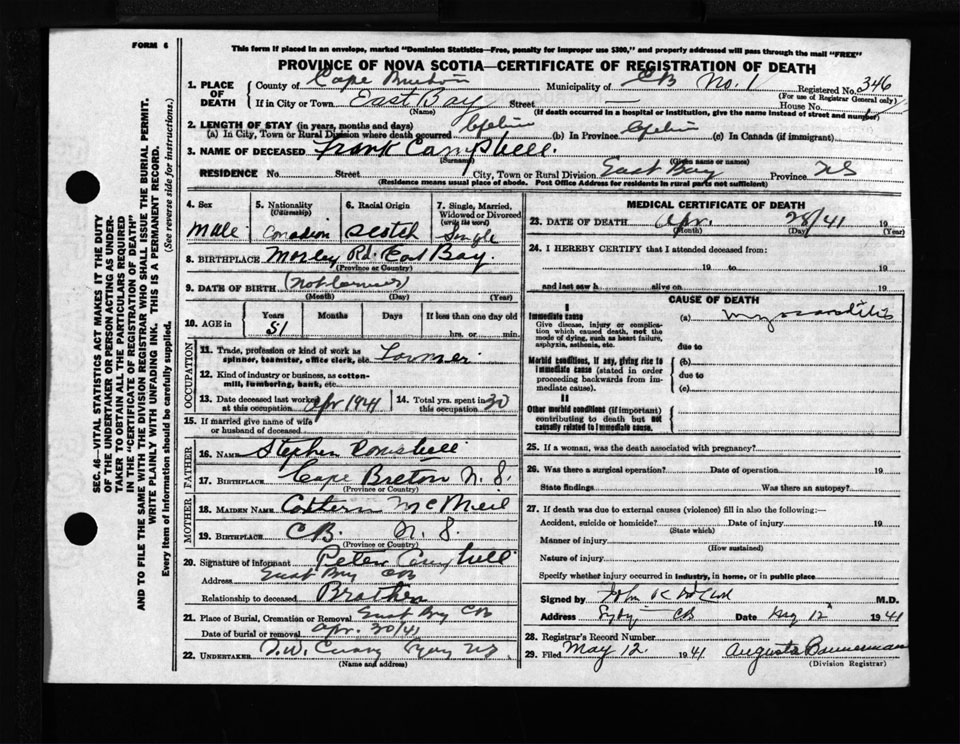 FORM 6
This form if placed in an envelope, marked "Dominion Statistics—Free, penalty for improper use $300," and properly addressed will pass through the mail "FREE"
PROVINCE OF NOVA SCOTIA—CERTIFICATE OF REGISTRATION OF DEATH
1. PLACE OF DEATH
County of Cape Breton Municipality of CB No. 1 Registered No. 346
(For use of Registrar General only)
If in City or Town East Bay Street — House No.
(Name) (If death occurred in a hospital or institution, give the name instead of street and number)
2. LENGTH OF STAY (in years, months and days)
(a) In City, Town or Rural Division where death occurred Lifetime (b) In Province Lifetime (c) In Canada (if immigrant)
3. NAME OF DECEASED Frank Campbell.
(Surname) (Given name or names)
RESIDENCE No. Street City, Town or Rural Division East Bay Province NS
(Residence means usual place of abode. Post Office Address for residents in rural parts not sufficient)
4. Sex Male
5. Nationality (Citizenship) Canadian
6. Racial Origin Scotch
7. Single, Married, Widowed or Divorced (write the word) Single
8. BIRTHPLACE Morley Rd. East Bay.
(Province or Country)
9. DATE OF BIRTH
(Month) (Day) (Year)
10. AGE in Years 51 Months Days If less than one day old hrs. or min.
OCCUPATION
11. Trade, profession or kind of work as spinner, teamster, office clerk, etc. Farmer
12. Kind of industry or business, as cotton-mill, lumbering, bank, etc.
13. Date deceased last worked at this occupation Apr 1941
14. Total yrs. spent in this occupation 30
15. If married give name of wife or husband of deceased
FATHER
16. NAME Stephen Campbell
17. BIRTHPLACE Cape Breton N.S.
(Province or Country)
MOTHER
18. MAIDEN NAME Cathern McNeil
19. BIRTHPLACE CB. N.S.
(Province or Country)
20. Signature of Informant Peter Campbell
Address East Bay CB
Relationship to deceased Brother
21. Place of Burial, Cremation or Removal East Bay CB
Date of burial or removal Apr. 30/41
22. UNDERTAKER T.W. Curry
(Name and address)
MEDICAL CERTIFICATE OF DEATH
23. DATE OF DEATH Apr. 28/41 19
(Month) (Day) (Year)
24. I HEREBY CERTIFY that I attended deceased from:
19 to 19
and last saw h alive on 19
CAUSE OF DEATH
I
Immediate cause
Give disease, injury or complication which caused death, not the mode of dying, such as heart failure, asphyxia, asthenia, etc.
(a) Myocarditis
due to
Morbid conditions, if any, giving rise to immediate cause (stated in order proceeding backwards from immediate cause).
(b)
due to
(c)
II
Other morbid conditions (if important) contributing to death but not causally related to immediate cause.
25. If a woman, was the death associated with pregnancy?
26. Was there a surgical operation? Date of operation 19
State findings Was there an autopsy?
27. If death was due to external causes (violence) fill in also the following:—
Accident, suicide or homicide? Date of injury 19
(State which)
Manner of injury
(How sustained)
Nature of injury
Specify whether injury occurred in industry, in home, or in public place
Signed by John K M.D.
Address Sydney CB Date May 12 1941
28. Registrar's Record Number
29. Filed May 12 1941 Augusta Bannerman
(Division Registrar)
SEC. 46—VITAL STATISTICS ACT MAKES IT THE DUTY
OF THE UNDERTAKER OR PERSON ACTING AS UNDER-
TAKER TO OBTAIN ALL THE PARTICULARS REQUIRED
IN THE "CERTIFICATE OF REGISTRATION OF DEATH"
AND TO FILE THE SAME WITH THE DIVISION REGISTRAR WHO SHALL ISSUE THE BURIAL PERMIT.
WRITE PLAINLY WITH UNFADING INK. THIS IS A PERMANENT RECORD.
Every item of information should be carefully supplied. (See reverse side for instructions.)